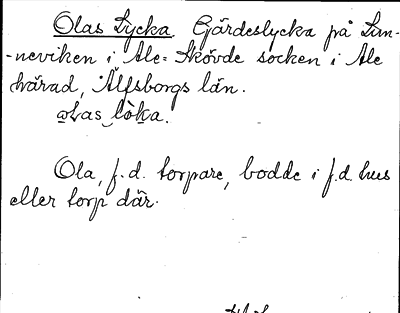 Olas Lycka. Gärdeslycka på Sun-
-neviken i Ale-Skövde socken i Ale
härad, Älfsborgs län.
Ola, f.d. torpare, bodde i f.d. hus
eller torp där.